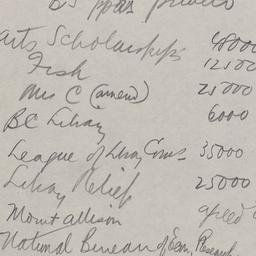 arts Scholarships 48000
Fish 12500
Mrs C (amend) 25000
BC Library 6000
League of Library Coms 35000
Library Relief 25000
Mount allison agreed
National Bureau of Econ. Research